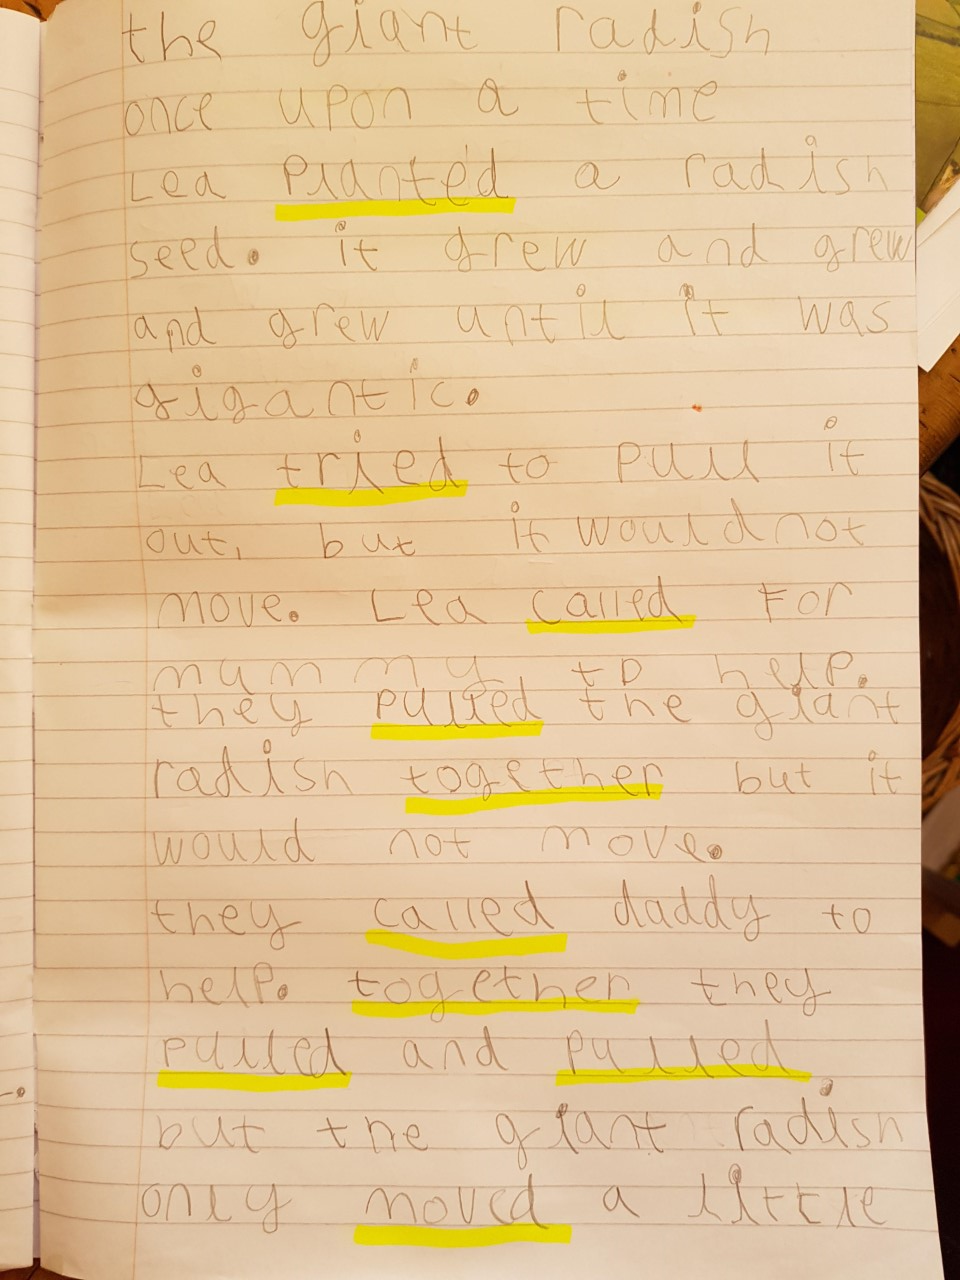 the giant radish
once upon a time
Lea planted a radish
seed. it grew and grew
and grew until it was
gigantic.
Lea tried to pull it
out, but it would not
move. Lea called For
mummy to help.
they pulled the giant
radish together but it
would not move.
they called daddy to
help. together they
pulled and pulled
but the giant radish
only moved a little